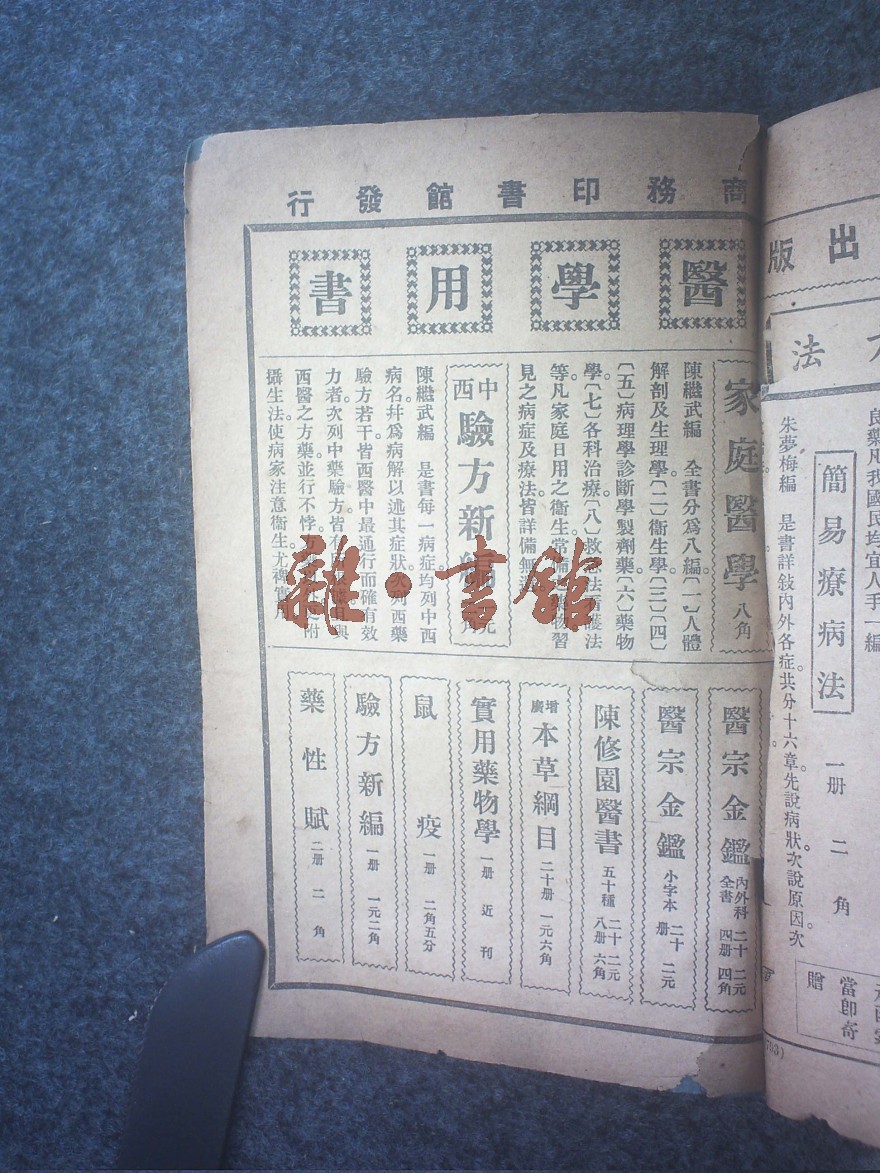 商務印書館發行
醫學用書
家庭醫學 八角
陳繼武編 全書分爲八編〔一〕人體
解剖及生理學〔二〕衞生學〔三〕〔四〕
〔五〕病理學診斷學製劑藥〔六〕藥物
學〔七〕各科治療〔八〕救 法看護法
等凡家庭日用之衞生常 藥物習
見之病症及療法皆詳備無
中西驗方新編 元 角
陳繼武編 是書每一病症均列中西
病名幷爲病解以述其症狀次列西藥
驗方若干皆西醫中最通行而確有效
力者次列中藥驗方皆 與
西醫之方藥並行不悖 附
攝生法使病家注意衞生尤裨實用
醫宗金鑑 內外科全書 二十四册 二元四角
醫宗金鑑 小字本 二十册 二元
陳修園醫書 五十種 二十八册 二元六角
增廣本草綱目 二十册 一元六角
實用藥物學 一册 近刊
鼠疫 一册 二角五分
驗方新編 一册 一元二角
藥性賦 二册 二角
雜·書館
出版
法
良藥凡我國民均宜人手一編
簡易療病法 一册 二角
朱夢梅編 是書詳敍內外各症共分十六章先說病狀次說原因次
當卽奇
贈